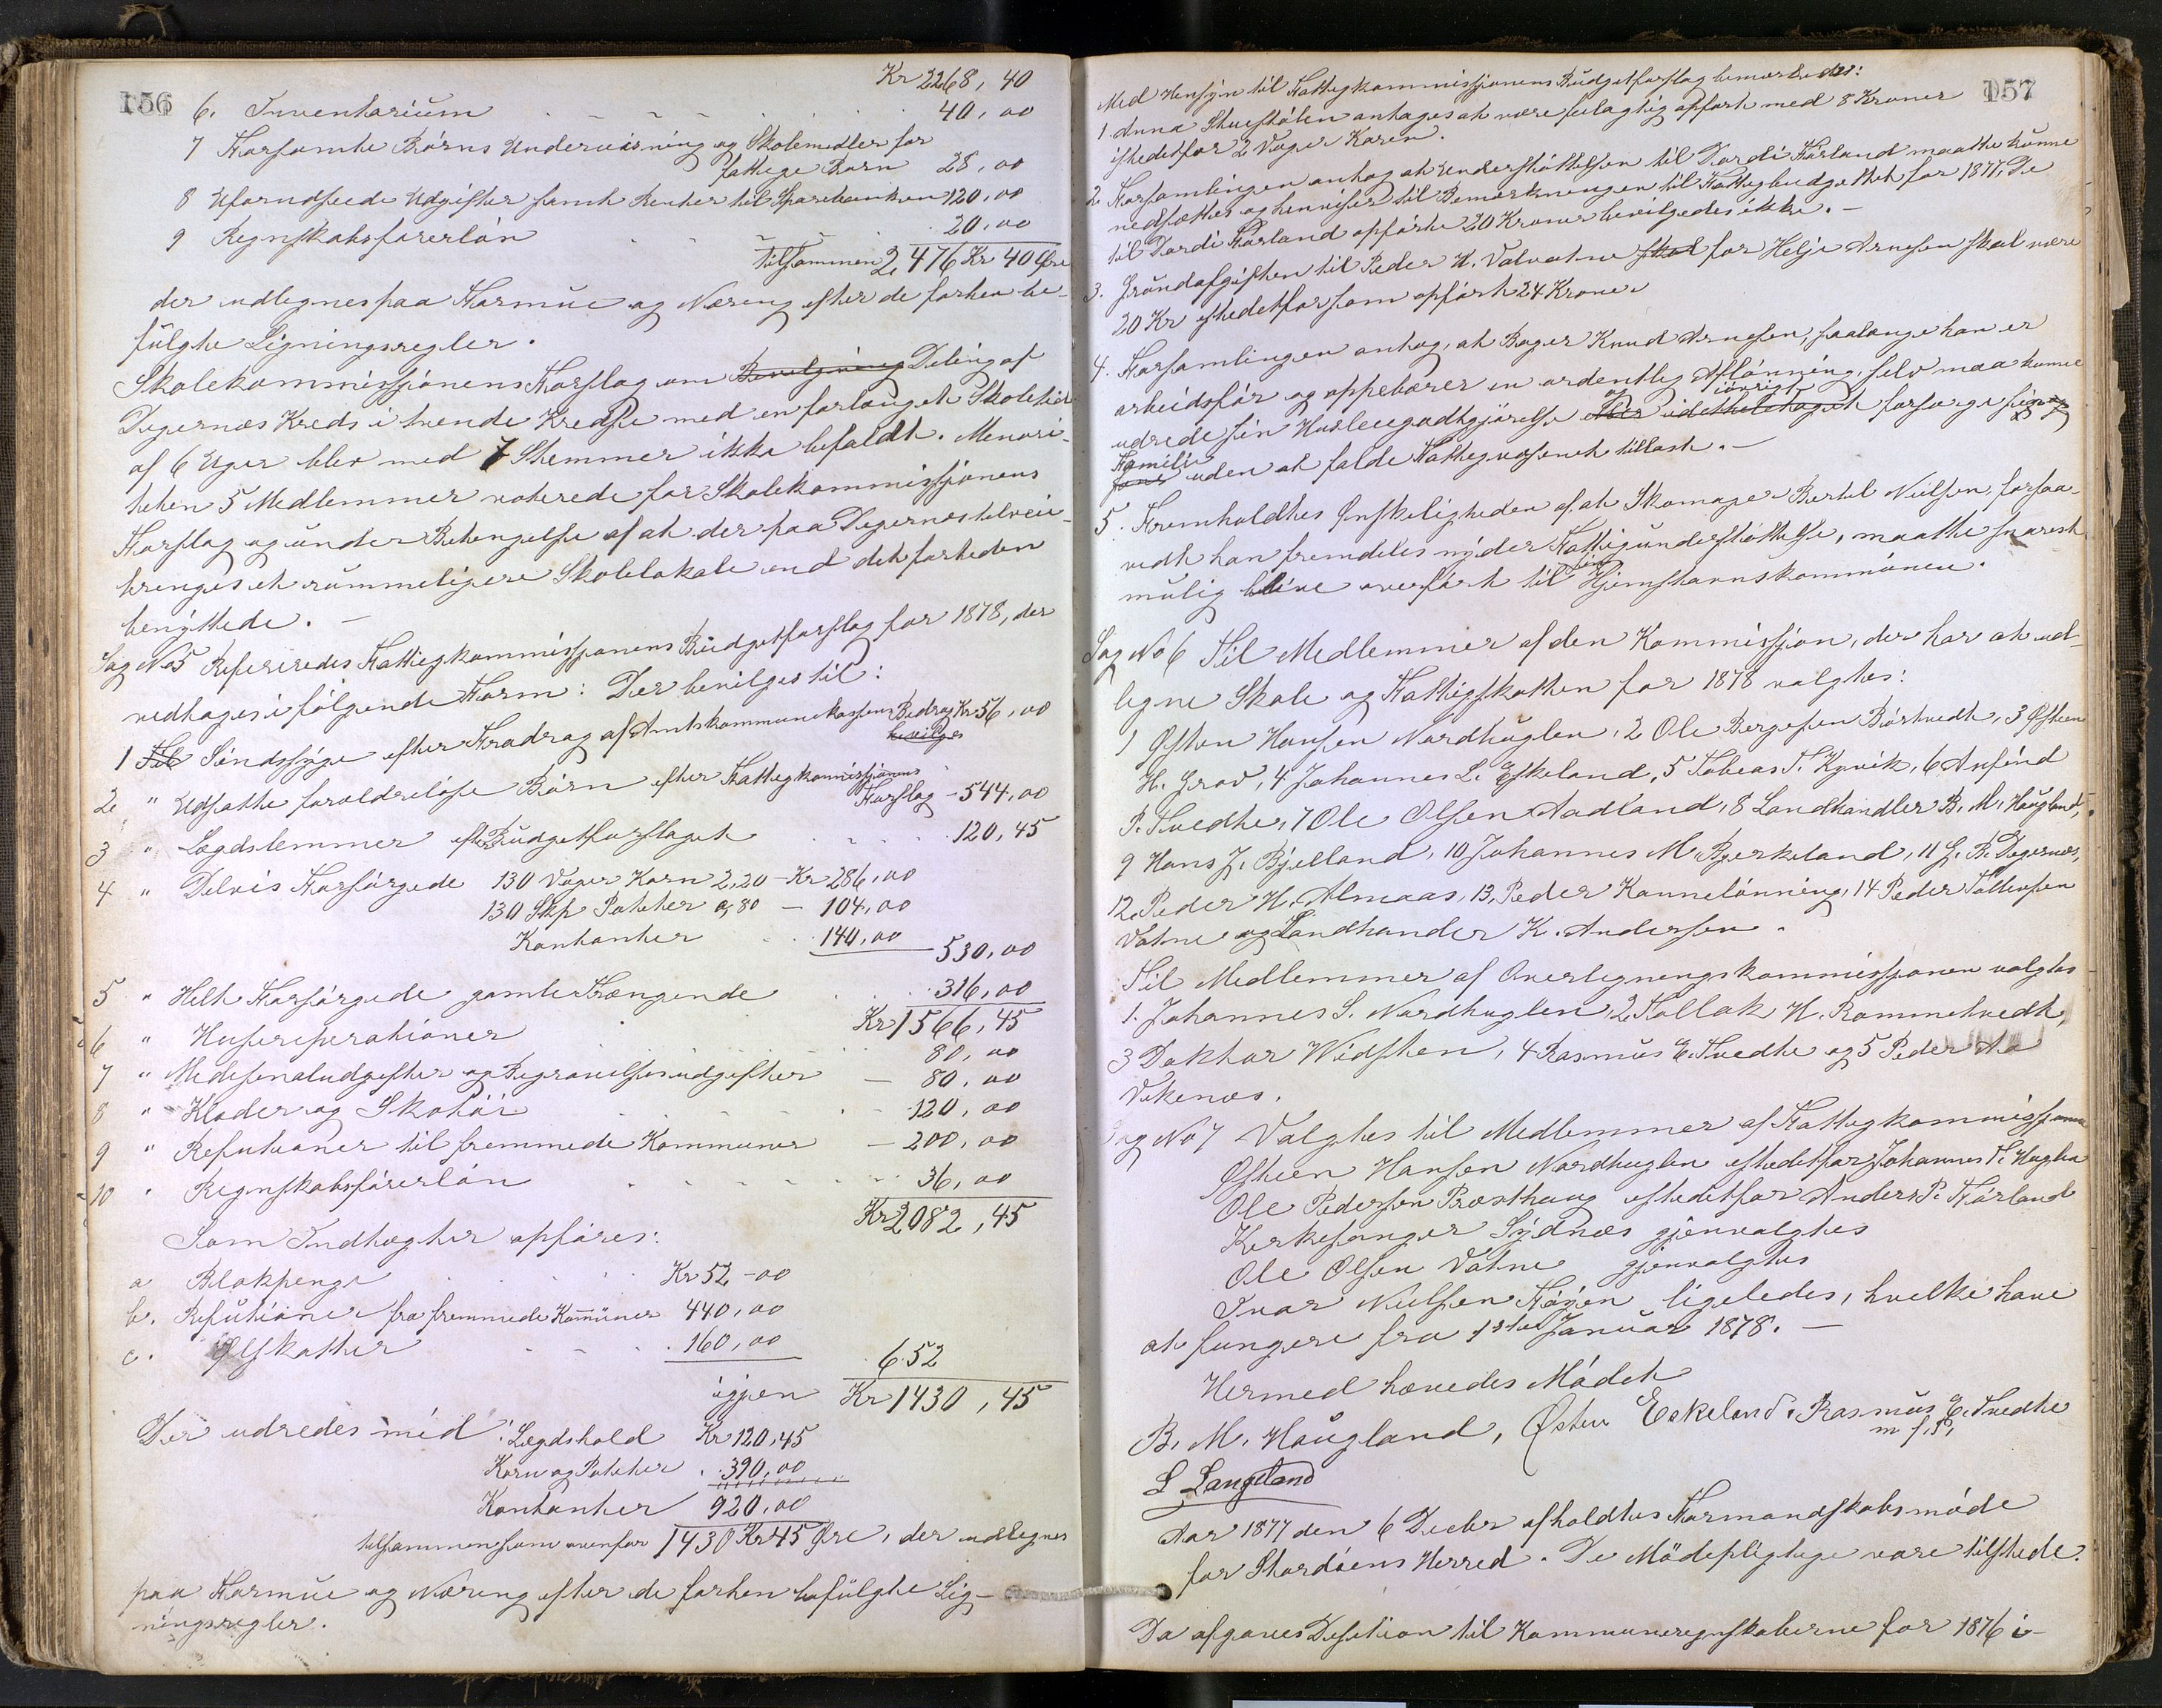 156
Kr 2268, 40
6. Inventarium 40,00
7 Forsømte Børns Undervisning og Skolemidler for
fattige Børn 28,00
8 Uforudseede Udgifter samt Renter til Sparebanken 120,00
9 Regnskabsførerløn 20,00
tilsammen 2,476 Kr 40 Øre
der udlegnes paa Formue og Næring efter de forhen be-
fulgte Ligningsregler.
Skolekommissjonens Forslag om Bevilgning Deling af
Digernæs Kreds i tvende Kredse med en forlænget Skoletid
af 6 Uger blev med 7 Stemmer ikke befaldt. Menori-
teten 5 Medlemmer voterede for Skolekommissjonens
Forslag og under Betengelse af at der paa Digernæs telvei-
bringes et rummeligere Skolelokale end det forheden
benyttede. —
Sag No 5 Refereredes Fattigkommissjonens Budgetforslag for 1878, der
vedtages i følgende Form: Der bevilges til:
1 Til Sindssyge efter Fradrag af Amtskommunekassens Bedrag Kr 56,00
bevilges
2. " Udsatte forældreløse Børn efter Fattigkommissjonens
Forslag - 544,00
3 " Lægdslemmer efter Budgetforslaget 120,45
4 " Delvis Forsørgede 130 Voger Korn 2,20 - Kr 286,00
130 Skp Poteter a 80 — 104,00
Kontanter 140,00
530,00
5 " Helt Forsørgede gamle Trængende 316,00
Kr 1566,45
6 " Husreperationer 80,00
7 " Medesinaludgifter og Begravelsesudgifter — 80,00
8 " Klæder og Skotøi 120,00
9 " Refutioner til fremmede Kommuner — 200,00
10 " Regnskabsførerløn 36,00
Kr 2082,45
Som Indtægter opføres:
a Blokpenge Kr 52 - 00
b. Refutioner fra fremmede Kommuner 440,00
c. Ølskatter 160,00
652
igjen Kr 1430,45
Der udredes med: Lægdshold Kr 120,45
Korn og Poteter 390,00
Kontanter 920,00
tilsammen som ovenfor 1430 Kr 45 Øre, der udlegnes
paa Formue og Næring efter de forhen befulgte Lig-
ningsregler.
157
Med Hensyn til Fattigkommissjonens Budgetforslag bemærkedes:
1. Anna Stuestølen antages at være feilagtig opført med 8 Kroner
istedetfor 2 Voger Koren.
2. Forsamlingen antog at Understøttelsen til Dordi Hørland maatte kunne
nedsættes og henviser til Bemærkningen til Fattigbudgettet for 1877. De
til Dordi Hørland opførte 20 Kroner bevilgedes ikke. —
3. Grundafgiften til Peder H. Valvatne skal for Helje Arnesen skal være
20 Kr istedetfor som opført 24 Kroner
4. Forsamlingen antog, at Bager Knud Arnesen, saalænge han er
arbeidsfør og oppebærer en ordentlig Aflønning, selv maa kunne
udrede sin Husleiegodtgjørelse og iøvrigt idethele taget forsørge sig og
Familie uden at falde Fattigvæsenet tillast. —
5. Fremholdtes Ønskeligheden af at Skomager Bertel Nielsen, forsaa-
vidt han fremdeles nyder Fattigunderstøttelse, maatte snarest
mulig blive overført til sin Hjemstavnskommune.
Sag No 6 Til Medlemmer af den Kommission, der har at ud-
legne Skole og Fattigskatten for 1878 valgtes:
1 Østen Hansen Nordhuglen, 2 Ole Bergesen Børtvedt, 3 Østen
H. Grov, 4 Johannes L. Eskeland, 5 Tobeas T. Kyvik, 6 Anfind
P. Tvedte, 7 Ole Olsen Aadland, 8 Landhandler B. M. Haugland,
9 Hans J. Bjelland, 10 Johannes M. Bjerkeland, 11 G. B. Digernæs,
12. Peder H. Almaas, 13. Peder Kannelønning, 14 Peder Tollevsen
Vatne og Landhandler K. Andersen.
Til Medlemmer af Overlegningskommissjonen valgtes
1. Johannes S. Nordhuglen, 2 Tollak H. Rommetvedt,
3 Doktor Widsten, 4 Rasmus E. Tvedte og 5 Peder Aa
Vikenæs.
Sag No 7 Valgtes til Medlemmer af Fattigkommissjonen
Østen Hansen Nordhuglen istedetfor Johannes S. Huglen
Ole Pedersen Præsthaug istedetfor Anders P. Hørland
Kirkesanger Sydnæs gjenvalgtes
Ole Olsen Vatne gjenvalgtes
Ivar Nielsen Høyen ligeledes, hvilke have
at fungere fra 1ste Januar 1878. —
Hermed hævedes Mødet
B. M. Haugland, Østen Eskeland, Rasmus E. Tvedte
m f. P.
L Langeland
Aar 1877 den 6 Decbr afholdtes Formandskabsmøde
for Stordøens Herred. De Mødepligtige vare tilstede.
Da afgaves Desition til Kommuneregnskaberne for 1876 i-